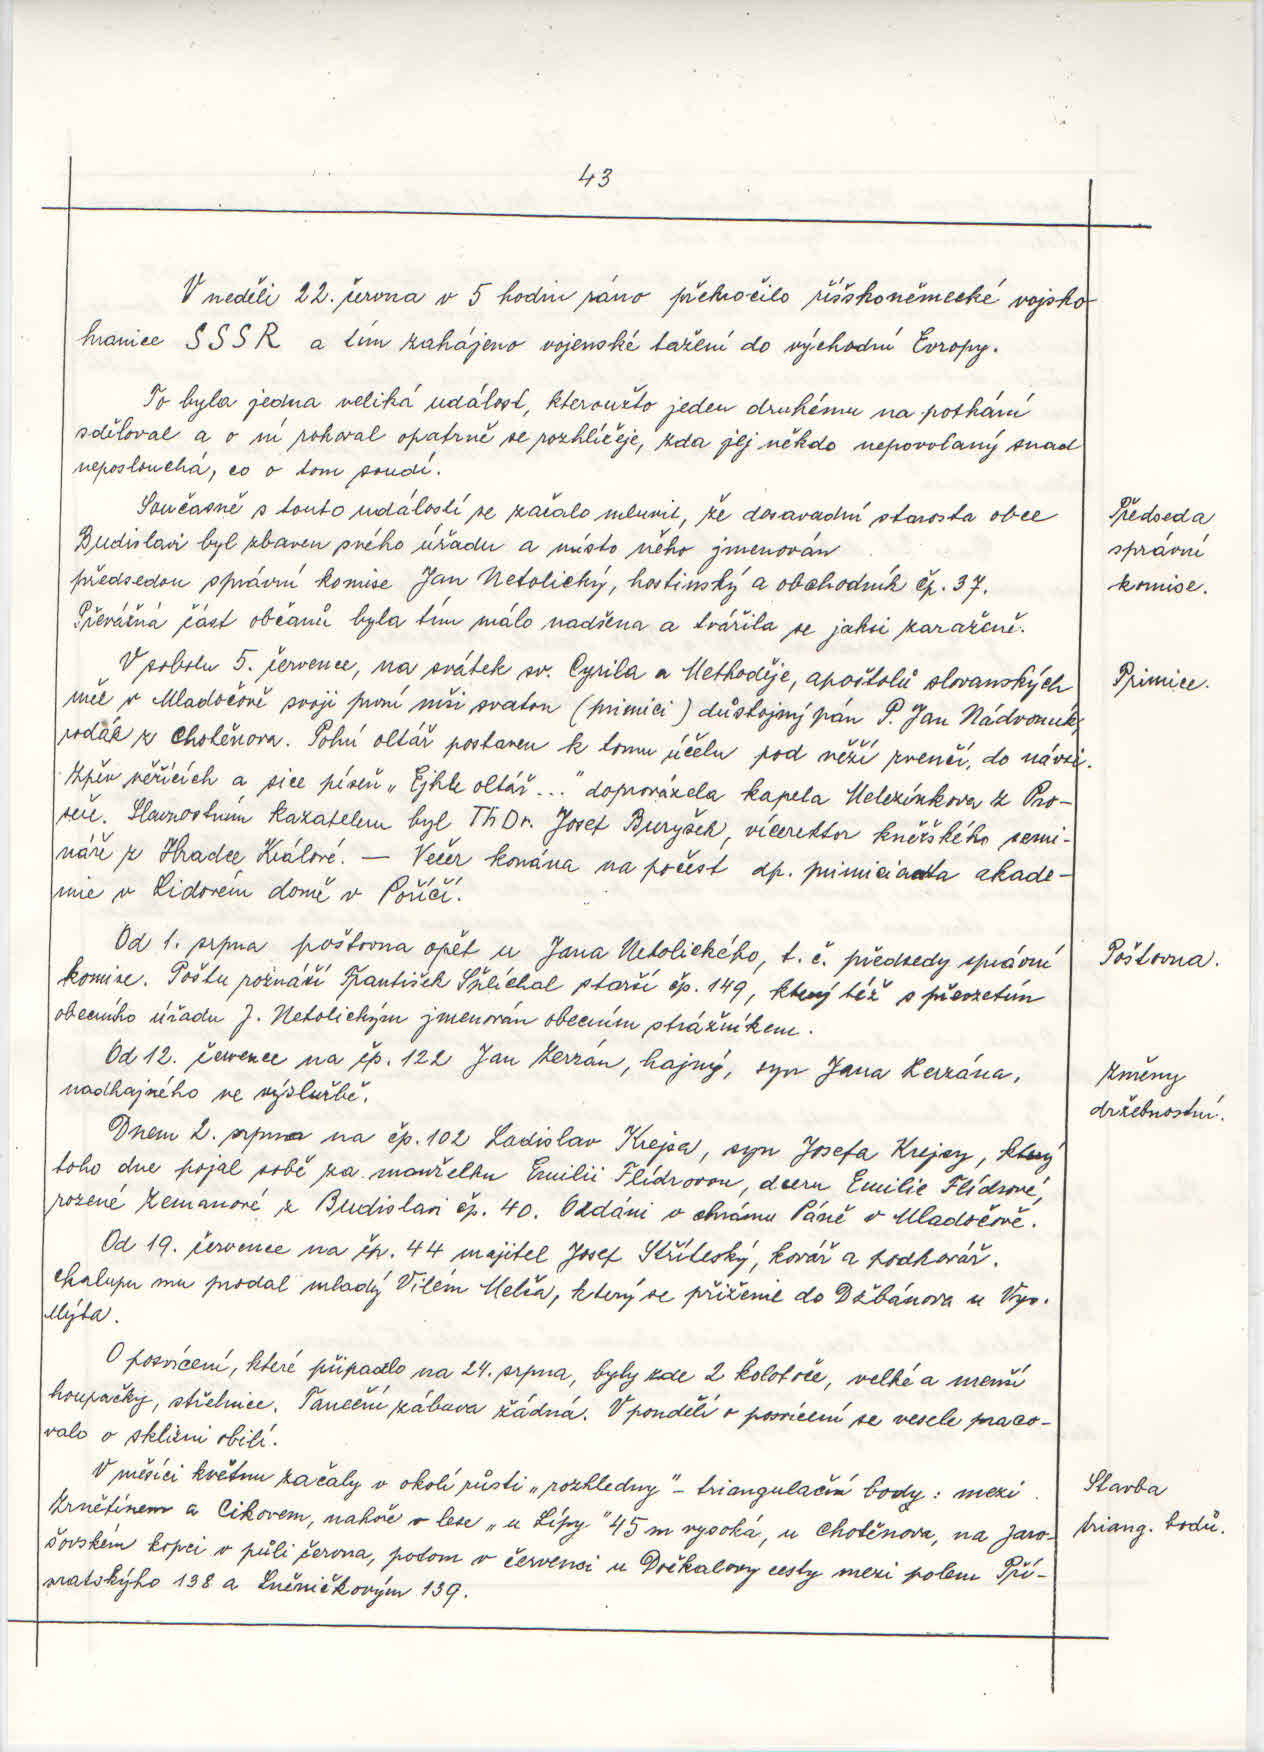 43
V neděli 22. června v 5 hodin ráno překročilo říšskoněmecké vojsko
hranice SSSR a tím zahájeno vojenské tažení do východní Evropy.
To byla jedna veliká událost, kteroužto jeden druhému na potkání
sděloval a o ní rokoval opatrně se rozhlížeje, zda jej někdo nepovolaný snad
neposlouchá, co o tom soudí.
Současně s touto událostí se začalo mluvit, že dosavadní starosta obce
Budislavi byl zbaven svého úřadu a místo něho jmenován
předsedou správní komise Jan Netolický, hostinský a obchodník čp. 37.
Převážná část občanů byla tím málo nadšena a tvářila se jaksi zaraženě.
Předseda
správní
komise.
V sobotu 5. července, na svátek sv. Cyrila a Methoděje, apoštolů slovanských
měl v Mladočově svoji první mši svatou (primici) důstojný pán P. Jan Nádvorník,
rodák z Chotěnova. Polní oltář postaven k tomu účelu pod věží zvenčí, do návsi.
Zpěv věřících a sice píseň „Ejhle oltář..." doprovázela kapela Melezínkova z Pro-
seče. Slavnostním kazatelem byl ThDr. Josef Buryšek, vicerektor kněžského semi-
náře z Hradce Králové. — Večer konána na počest dp. primicianta akade-
mie v Lidovém domě v Poříčí.
Primice.
Od 1. srpna poštovna opět u Jana Netolického, t. č. předsedy správní
komise. Poštu roznáší František Shlíchal starší čp. 149, který též s převzetím
obecního úřadu J. Netolickým jmenován obecním strážníkem.
Poštovna.
Od 12. července na čp. 122 Jan Kerzán, hajný, syn Jana Kerzána,
nadhajného ve výslužbě.
Změny
držebnostní.
Dnem 2. srpna na čp. 102 Ladislav Krejsa, syn Josefa Krejsy, který
toho dne pojal sobě za manželku Emilii Flídrovou, dceru Emilie Flídrové,
rozené Zemanové z Budislavi čp. 40. Oddáni v chrámu Páně v Mladočově.
Od 19. července na čp. 44 majitel Josef Stříteský, kovář a podkovář.
Chalupu mu prodal mladý Vilém Melša, který se přiženil do Džbánova u Vys.
Mýta.
O posvícení, které připadlo na 24. srpna, byly zde 2 kolotoče, velké a menší
houpačky, střelnice. Taneční zábava žádná. V pondělí o posvícení se vesele praco-
valo o sklizni obilí.
V měsíci květnu začaly v okolí růsti „rozhledny" - triangulační body: mezi
Zrnětínem a Cikovem, nahoře v lese „u Lípy" 45 m vysoká, u Chotěnova, na Jaro-
šovském kopci v půli června, potom v červenci u Dočkalovy cesty mezi polem Pří-
vratskýho 138 a Lněničkovým 139.
Stavba
triang. bodů.